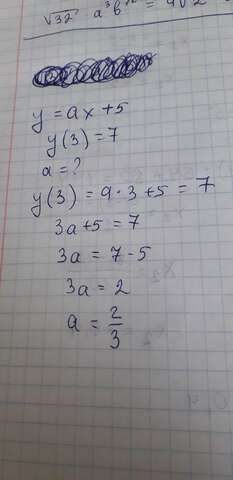 √32 · a³b
y = ax + 5
y(3) = 7
a = ?
y(3) = a · 3 + 5 = 7
3a + 5 = 7
3a = 7 - 5
3a = 2
a = 2/3